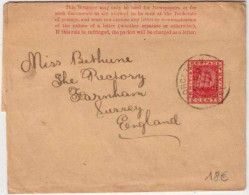 This Wrapper may only be used for Newspapers, or for
such Documents as are allowed to be sent at the Book rate
of postage, and must not contain any letter or communication
of the nature of a letter (whether separate or otherwise).
If this rule is infringed, the packet will be charged as a letter.
Miss Bethune
The Rectory
Farnham
Surrey
England
CENTS
18€